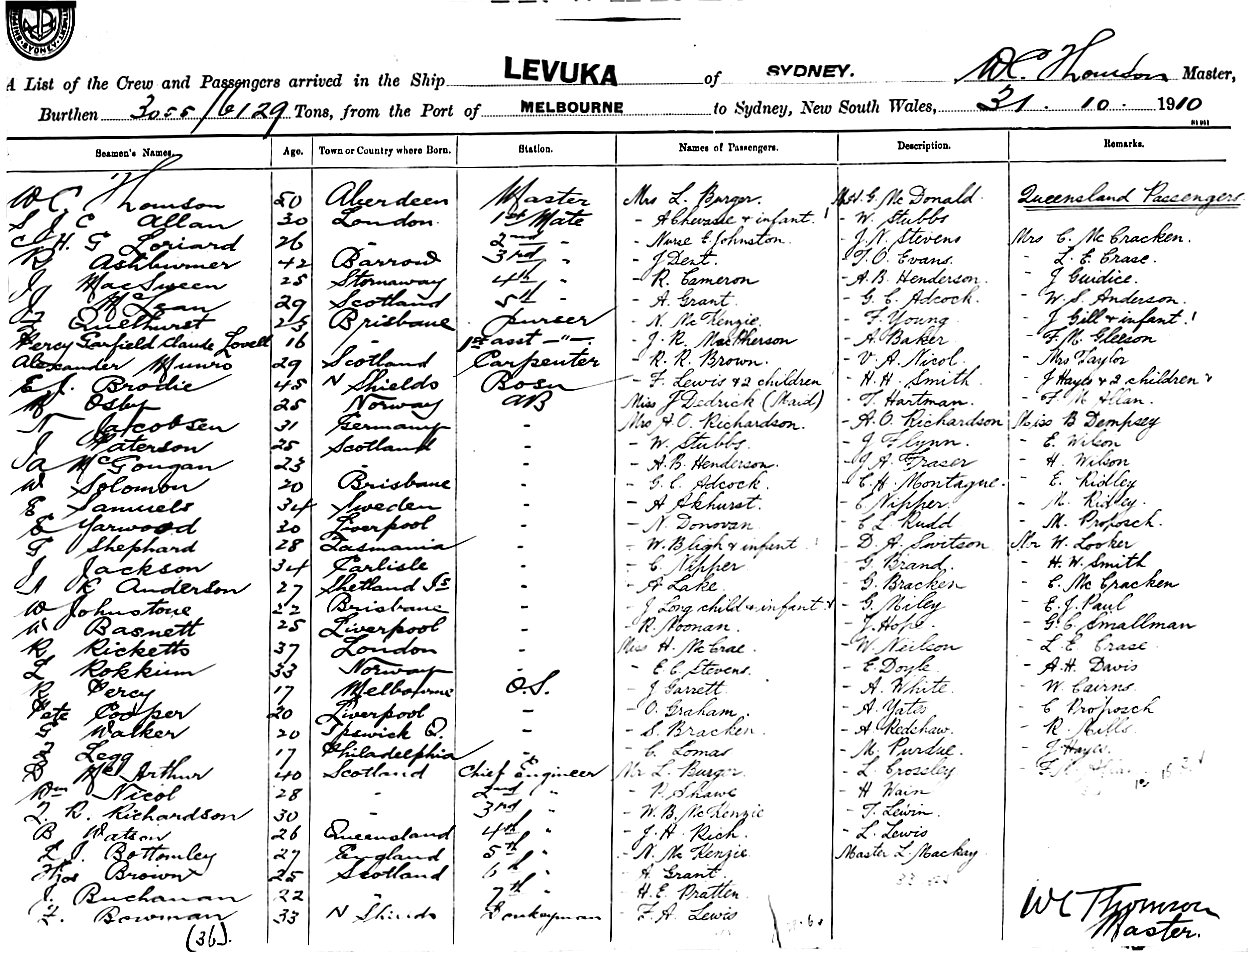 A List of the Crew and Passengers arrived in the Ship LEVUKA of SYDNEY. WC Thomson Master,
Burthen 3055/6129 Tons, from the Port of MELBOURNE to Sydney, New South Wales, 31. 10. 1910
Seamen's Names. Age. Town or Country where Born. Station. Names of Passengers. Description. Remarks.
WC Thomson 50 Aberdeen Master Mrs L. Burger. G. Mc Donald Queensland Passengers
S J C Allan 30 London 1st Mate - A Chevasse & infant ! - W. Stubbs
C. H. G Loriard 26 - 2nd " - Nurse E. Johnston. - J. N. Stevens Mrs C. McCracken.
R Ashburner 42 Barrow 3rd " - J Dent. - T. O. Evans. - L. E. Crase.
J MacSween 25 Stornaway 4th " - R. Cameron - A. B. Henderson. - J Guidice.
J McLean 29 Scotland 5th " - A. Grant. - G. C. Adcock. - W. S. Anderson.
Quelhurst 25 Brisbane purser - N. McKenzie - F. Young - J Gill & infant !
Percy Garfield Claude Lovell 16 " 1st asst -"-. - J. R. MacPherson - A Baker - F. M. Gleeson
Alexander Munro 29 Scotland Carpenter - R. R. Brown. - V. A. Nicol. - Mrs Taylor
E J. Brodie 45 N Shields Bosn - F. Lewis & 2 children - H. H. Smith. - J Hayes & 2 children
Osby 25 Norway AB Miss J Dedrick (Maid) - T. Hartman. - F. M. Allan.
N Jacobsen 31 Germany - Mrs A. O. Richardson. - A. O. Richardson Miss B Dempsey
J Paterson 25 Scotland - - W. Stubbs - J Flynn. - E. Wilson
A McGougan 23 - - - A. B. Henderson. - J. A. Fraser - H. Wilson
W Solomon 20 Brisbane - - G. C. Adcock. - C. H. Montague. - E. Ridley
E Samuels 34 Sweden - - A Akhurst. - C Nipper. - M. Ridley
E Yarwood 30 Liverpool - - N. Donovan. - C L. Rudd - M. Proposch.
G Shephard 28 Tasmania - - W. Bligh & infant ! - D. A. Mr W. Looker
J Jackson 34 Carlisle - - C. Nipper - G. Brand. - H. W. Smith
R Anderson 27 Shetland Is - - A Lake. - G. Bracken - E. McCracken
W Johnstone 22 Brisbane - - J. Long child & infant - G. Niley - E. J. Paul
W Basnett 25 Liverpool - - R. Noonan. - J. Hope - G. C. Smallman
R Ricketts 37 London - Miss H. McCrae - W. Neilson - L. E. Crase.
L Rokkium 33 Norway - - E. C. Stevens. - E. Doyle - A. H. Davis
R Percy 17 Melbourne O.S. - J. Garrett. - A. White. - W. Cairns.
Pete Cooper 20 Liverpool - - O. Graham. - A Yates - C Proposch
G Walker 20 Ipswich Q. - - S. Bracken. - A Redshaw. - R. Mills
Legg 17 Philadelphia - - C. Lomas - M. Purdue. - J Hayes.
D McArthur 40 Scotland Chief Engineer Mr L. Burger. - L. Crossley
Wm Nicol 28 - 2nd " - P. Shawe - H Wain
R. Richardson 30 - 3rd " - W. B. McKenzie - T. Lewin.
B Watson 26 Queensland 4th " - J. H. Rich. - L. Lewis
L. J. Bottomley 27 England 5th " - N. McKenzie Master L. Mackay
Thos Brown 25 Scotland 6th " - A. Grant
J. Buchanan 22 " 7th " - H. E. Pratten
Bowman 33 N Shields Donkeyman - F. A. Lewis
(36).
WC Thomson
Master.